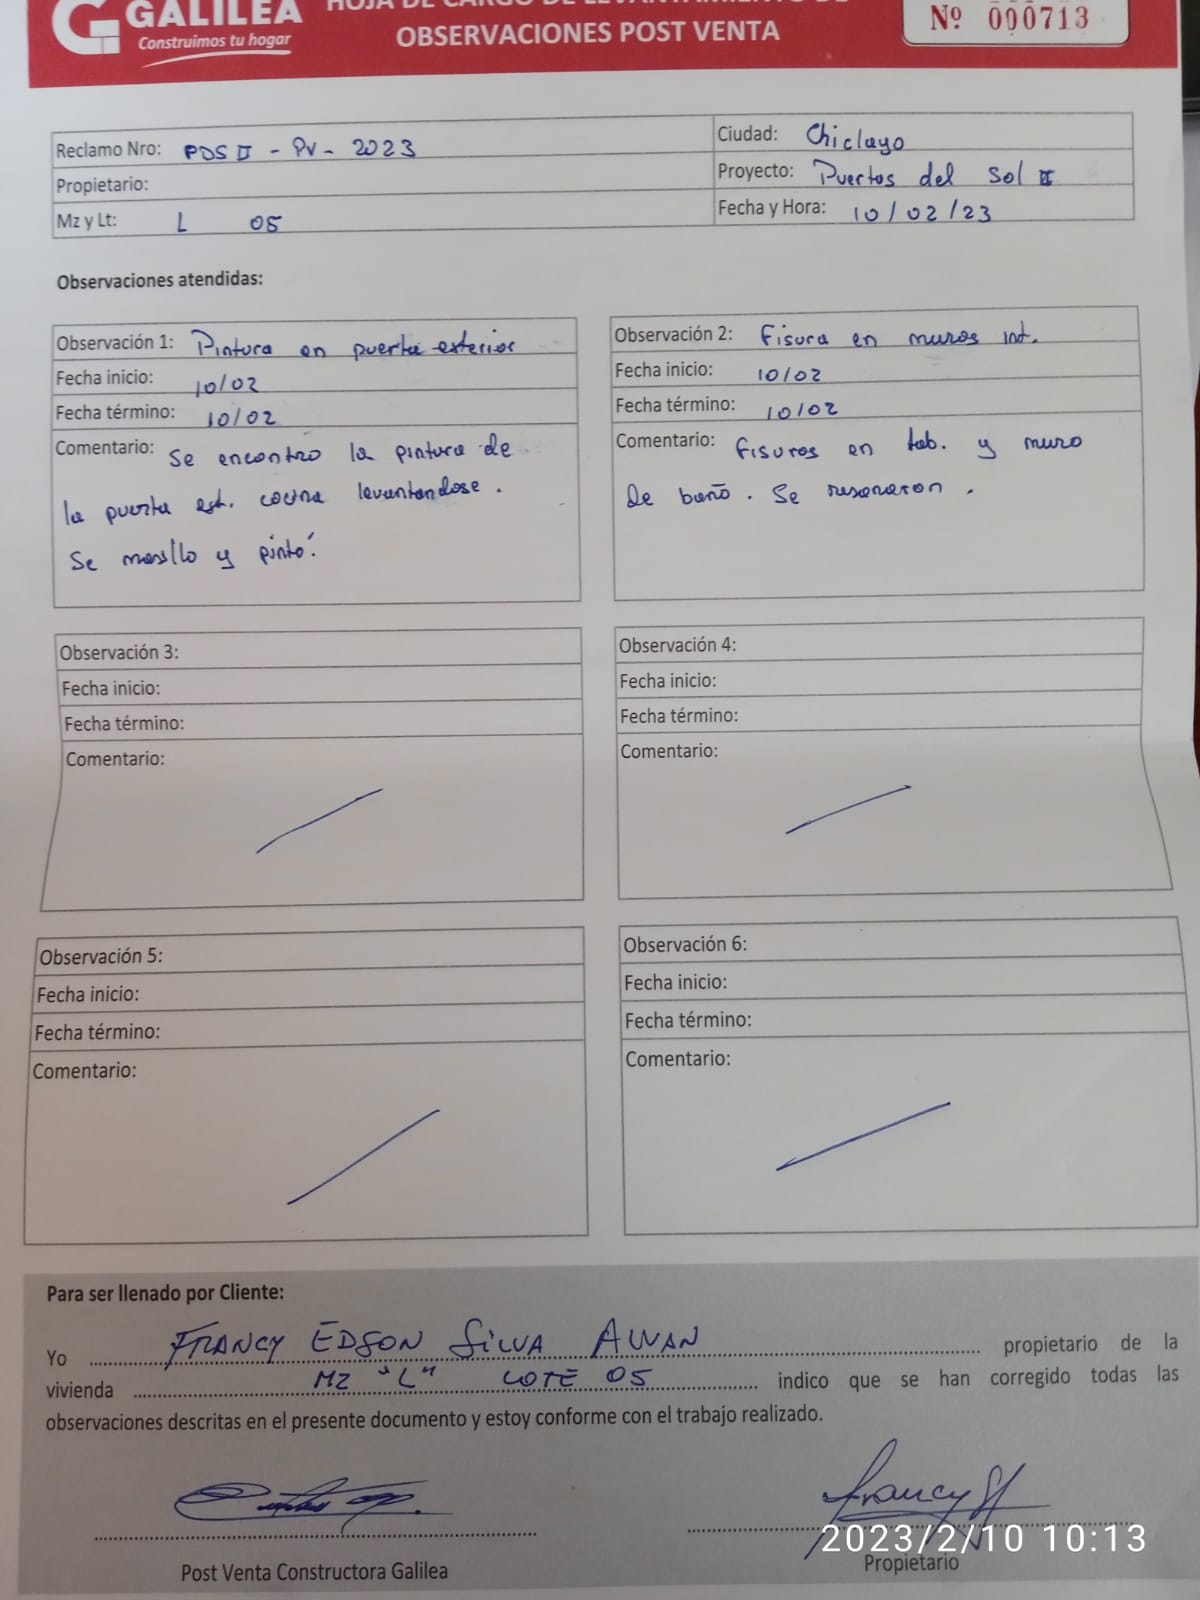 GALILEA
Construimos tu hogar
HOJA DE CARGO DE LEVANTAMIENTO DE
OBSERVACIONES POST VENTA
Nº 000713
Reclamo Nro: PDS II - PV - 2023
Ciudad: Chiclayo
Propietario:
Proyecto: Puertos del Sol II
Mz y Lt: L 05
Fecha y Hora: 10/02/23
Observaciones atendidas:
Observación 1: Pintura en puerta exterior
Fecha inicio: 10/02
Fecha término: 10/02
Comentario: Se encontró la pintura de
la puerta ext. cocina levantandose.
Se masillo y pintó.
Observación 2: Fisura en muros int.
Fecha inicio: 10/02
Fecha término: 10/02
Comentario: Fisuras en tab. y muro
de baño. Se resanaron.
Observación 3:
Fecha inicio:
Fecha término:
Comentario:
Observación 4:
Fecha inicio:
Fecha término:
Comentario:
Observación 5:
Fecha inicio:
Fecha término:
Comentario:
Observación 6:
Fecha inicio:
Fecha término:
Comentario:
Para ser llenado por Cliente:
Yo FRANCY EDSON SILVA propietario de la
vivienda MZ "L" LOTE 05 indico que se han corregido todas las
observaciones descritas en el presente documento y estoy conforme con el trabajo realizado.
Francy
2023/2/10 10:13
Post Venta Constructora Galilea
Propietario